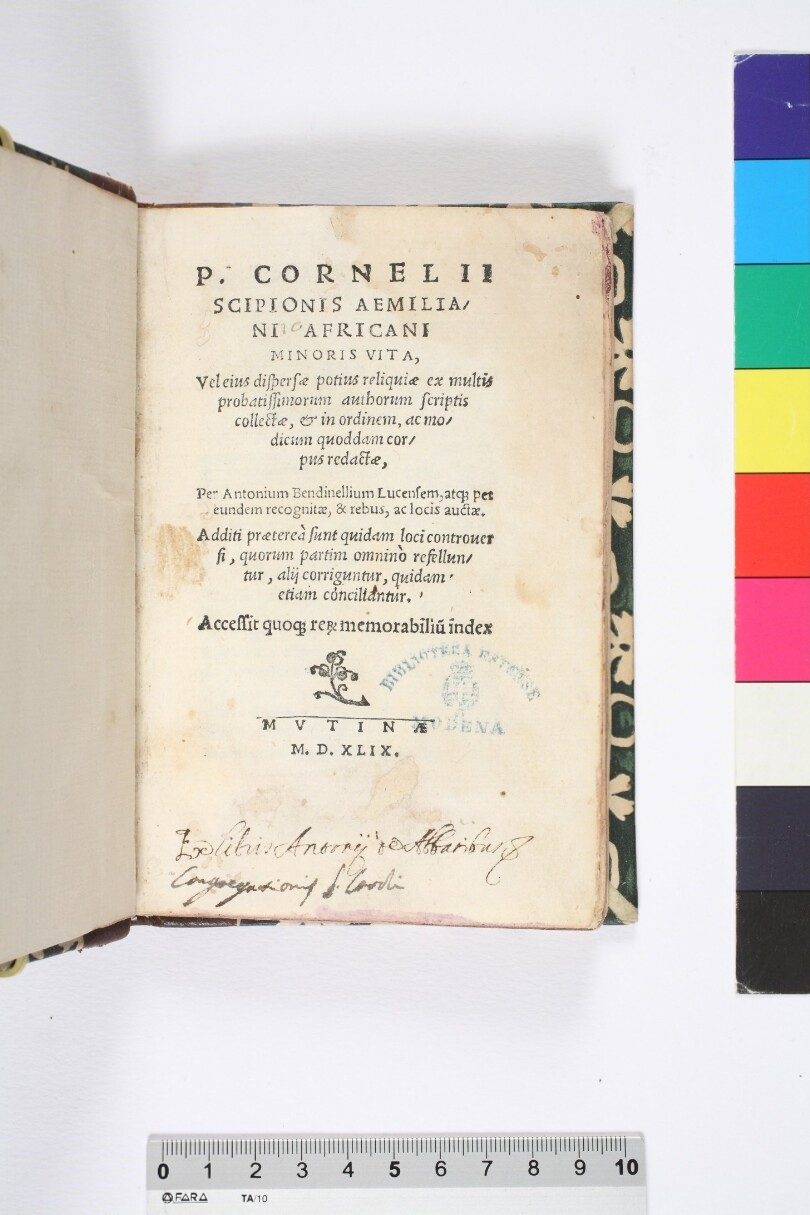 P. CORNELII
SCIPIONIS AEMILIA/
NI AFRICANI
MINORIS VITA,
Vel eius disperſæ potius reliquiæ ex multis
probatiſſimorum authorum ſcriptis
collectæ, & in ordinem, ac mo/
dicum quoddam cor/
pus redactæ,
Per Antonium Bendinellium Lucenſem, atqꝫ per
eundem recognitæ, & rebus, ac locis auctæ.
Additi præterea ̀ſunt quidam loci controuer
ſi, quorum partim omnino ̀ refellun/
tur, alij corriguntur, quidam
etiam conciliantur.
Acceſſit quoqꝫ reꝝ memorabiliū index
BIBLIOTECA ESTENSE
MODENA
MVTINÆ
M. D. XLIX.
Ex libris Antonij de Abbatibus
Congregationis S. Caroli
0 1 2 3 4 5 6 7 8 9 10
FARA TA/10